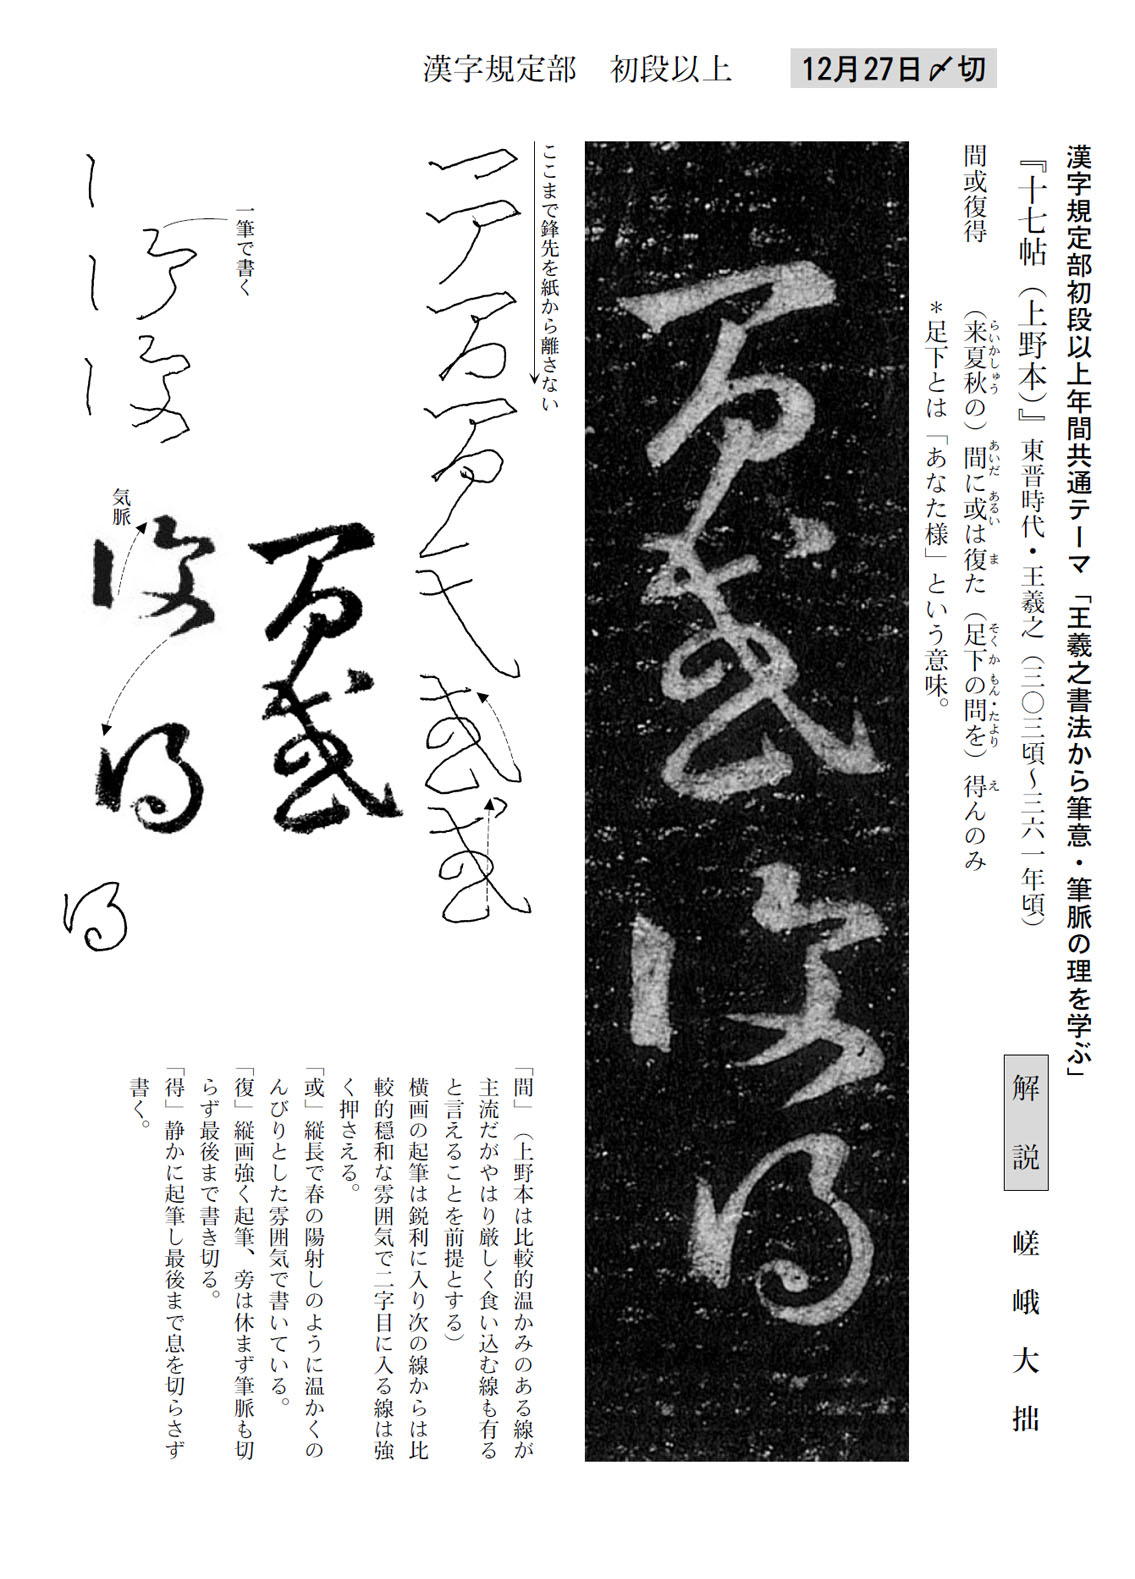 漢字規定部　初段以上
12月27日〆切
漢字規定部初段以上年間共通テーマ「王羲之書法から筆意・筆脈の理を学ぶ」
『十七帖（上野本）』東晋時代・王羲之（三〇三頃～三六一年頃）
解説　嵯峨大拙
間或復得
（来夏秋の）間に或は復た（足下の問を）得んのみ
らいかしゅう　あいだ　あるい　ま　そくか　もん・たより　え
＊足下とは「あなた様」という意味。
間或復得
ここまで鋒先を紙から離さない
一筆で書く
気脈
間或復得
「間」（上野本は比較的温かみのある線が
主流だがやはり厳しく食い込む線も有る
と言えることを前提とする）
横画の起筆は鋭利に入り次の線からは比
較的穏和な雰囲気で二字目に入る線は強
く押さえる。
「或」縦長で春の陽射しのように温かくの
んびりとした雰囲気で書いている。
「復」縦画強く起筆、旁は休まず筆脈も切
らず最後まで書き切る。
「得」静かに起筆し最後まで息を切らさず
書く。